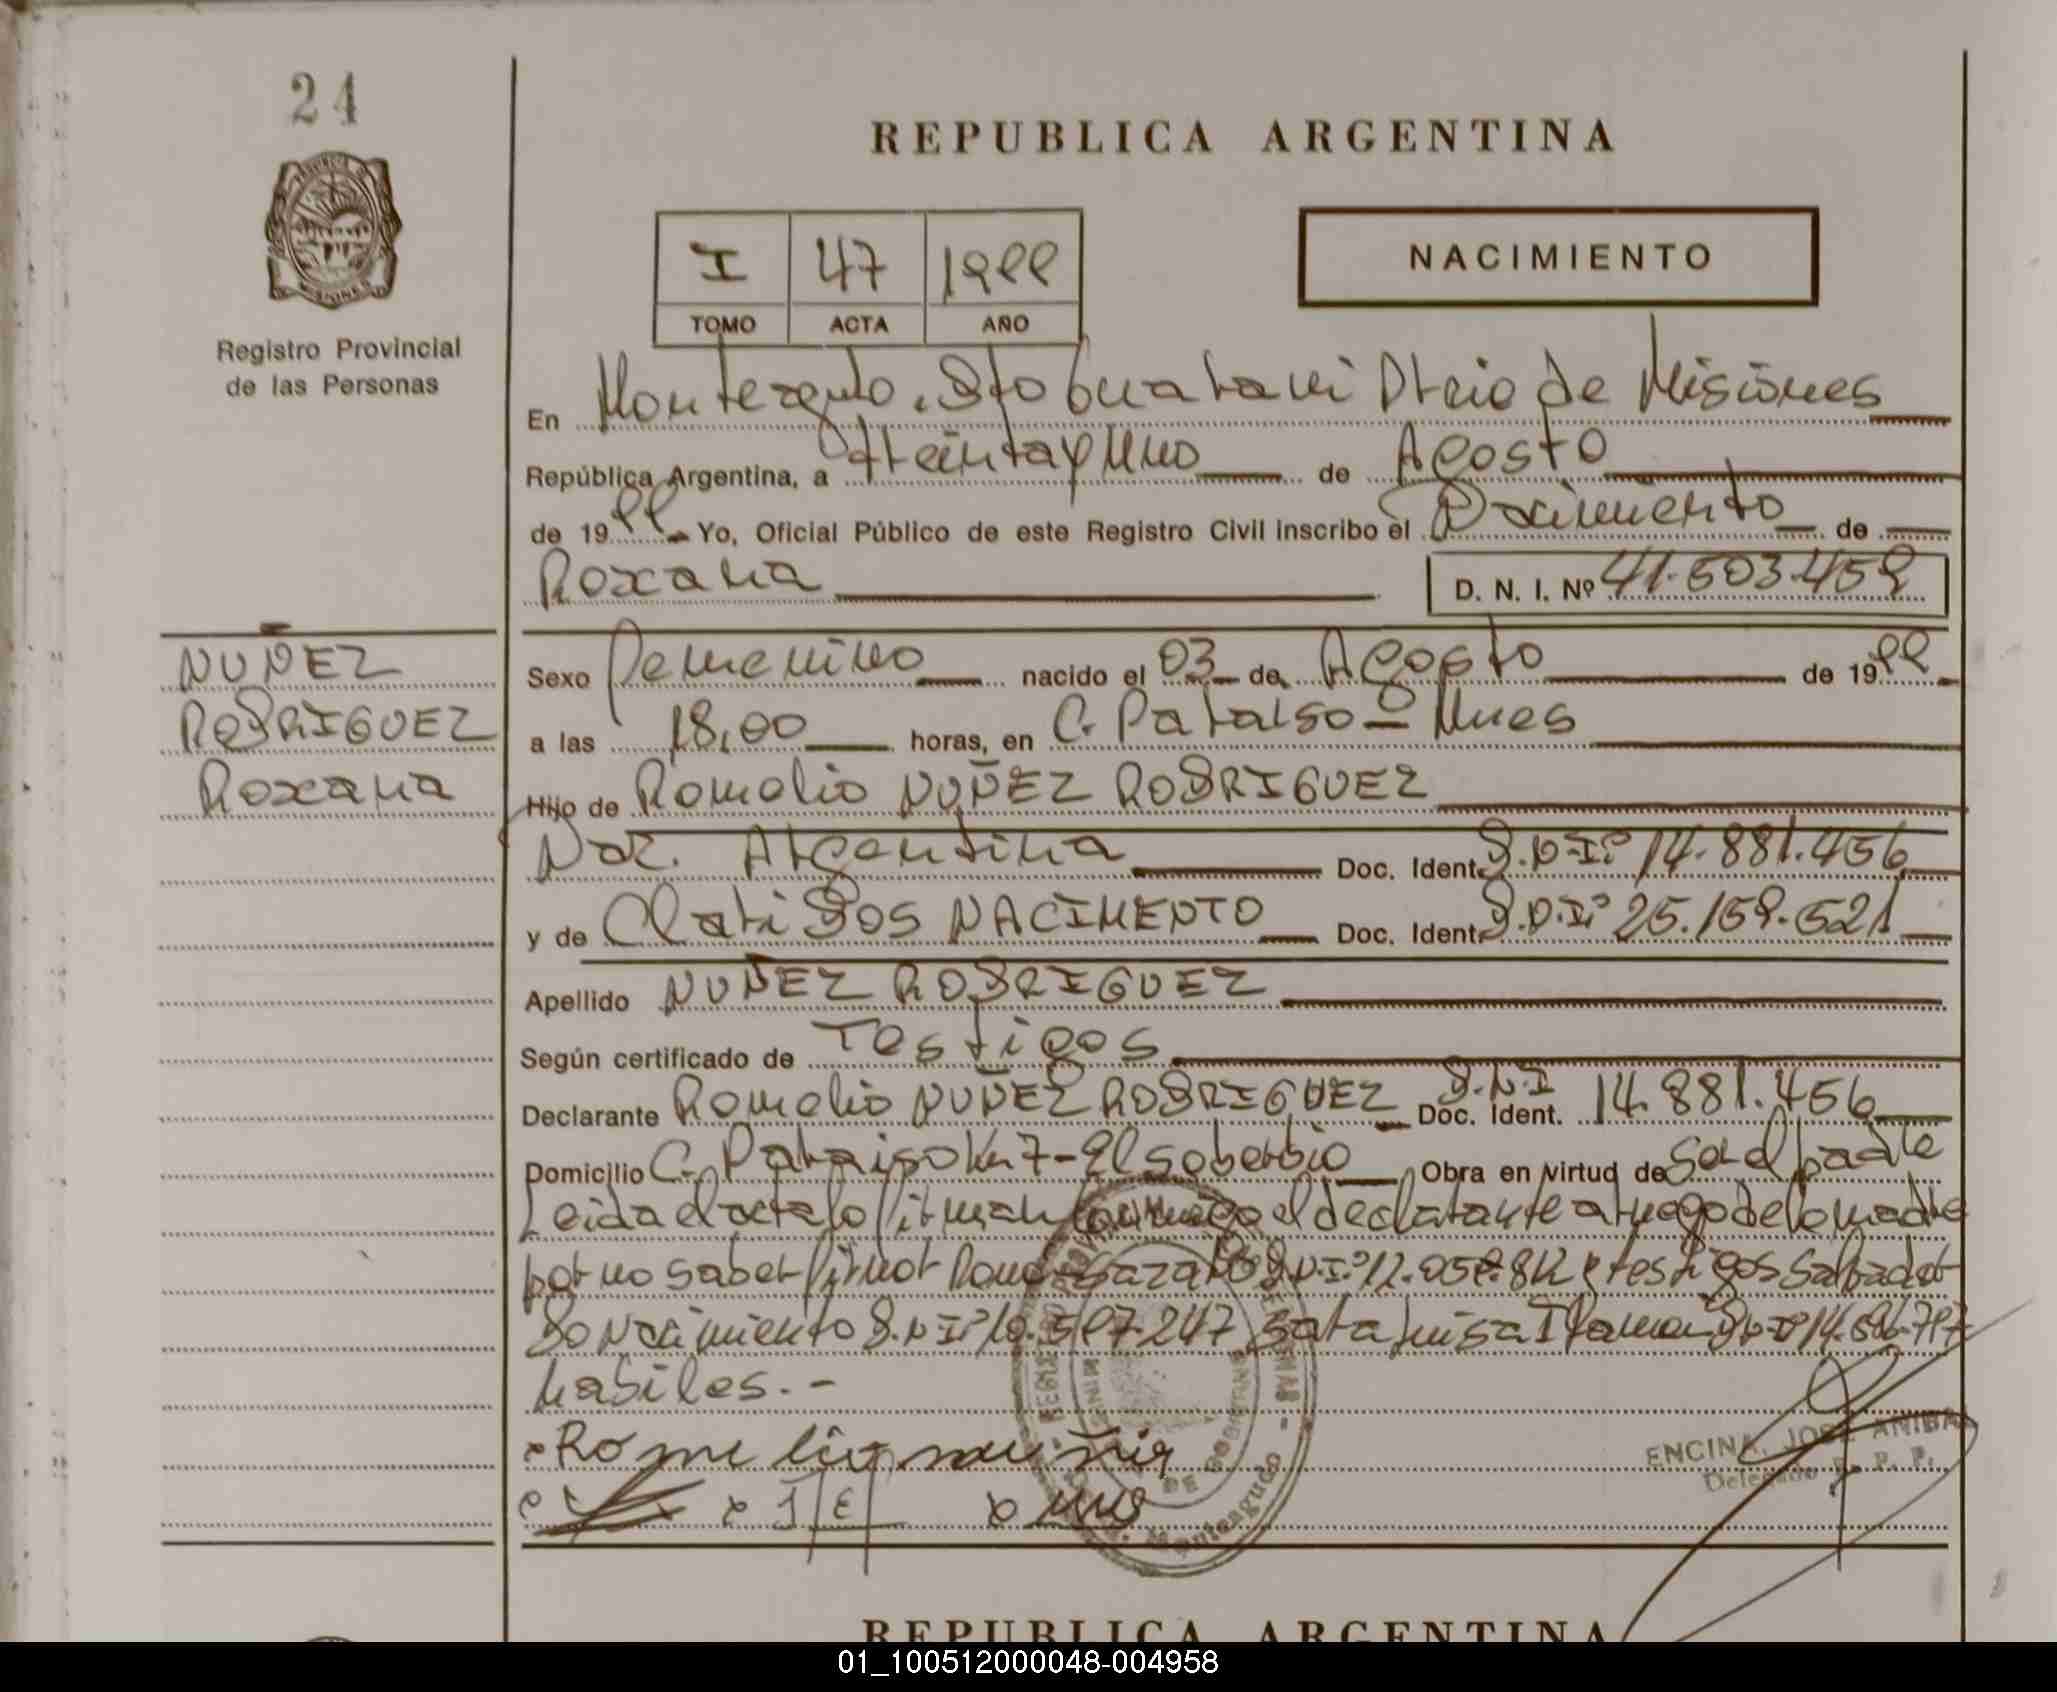 24
REPUBLICA ARGENTINA
NACIMIENTO
I 47 1988
TOMO ACTA AÑO
Registro Provincial
de las Personas
En Monteagudo. Dto Guarani Pteio de Misiones
República Argentina, a treinta y uno de Agosto
de 1988 Yo, Oficial Público de este Registro Civil inscribo el Nacimiento de
Roxana D. N. I. Nº 41.503.459
NUÑEZ
RODRIGUEZ
Roxana
Sexo Femenino nacido el 03 de Agosto de 1988
a las 18,00 horas, en C. Paraiso - Mnes
Hijo de Romelio NUÑEZ RODRIGUEZ
Nac. Argentina Doc. Ident. D.N.I. 14.881.456
y de Clari Dos NACIMENTO Doc. Ident. D.N.I. 25.159.521
Apellido NUÑEZ RODRIGUEZ
Según certificado de Testigos
Declarante Romelio NUÑEZ RODRIGUEZ Doc. Ident. D.N.I 14.881.456
Domicilio C. Paraiso Km 7 - El Soberbio Obra en virtud de Ser el padre
Leida el acta la firman conmigo el declarante a ruego de la madre
por no saber firmar D.N.I. y testigos Salvador
Do Nacimiento D.N.I. Sara Luisa
habiles. -
Romelio
ENCINA, JOSE ANIBA
Delegado R. P. P.
Monteagudo
REPUBLICA ARGENTINA
01_100512000048-004958